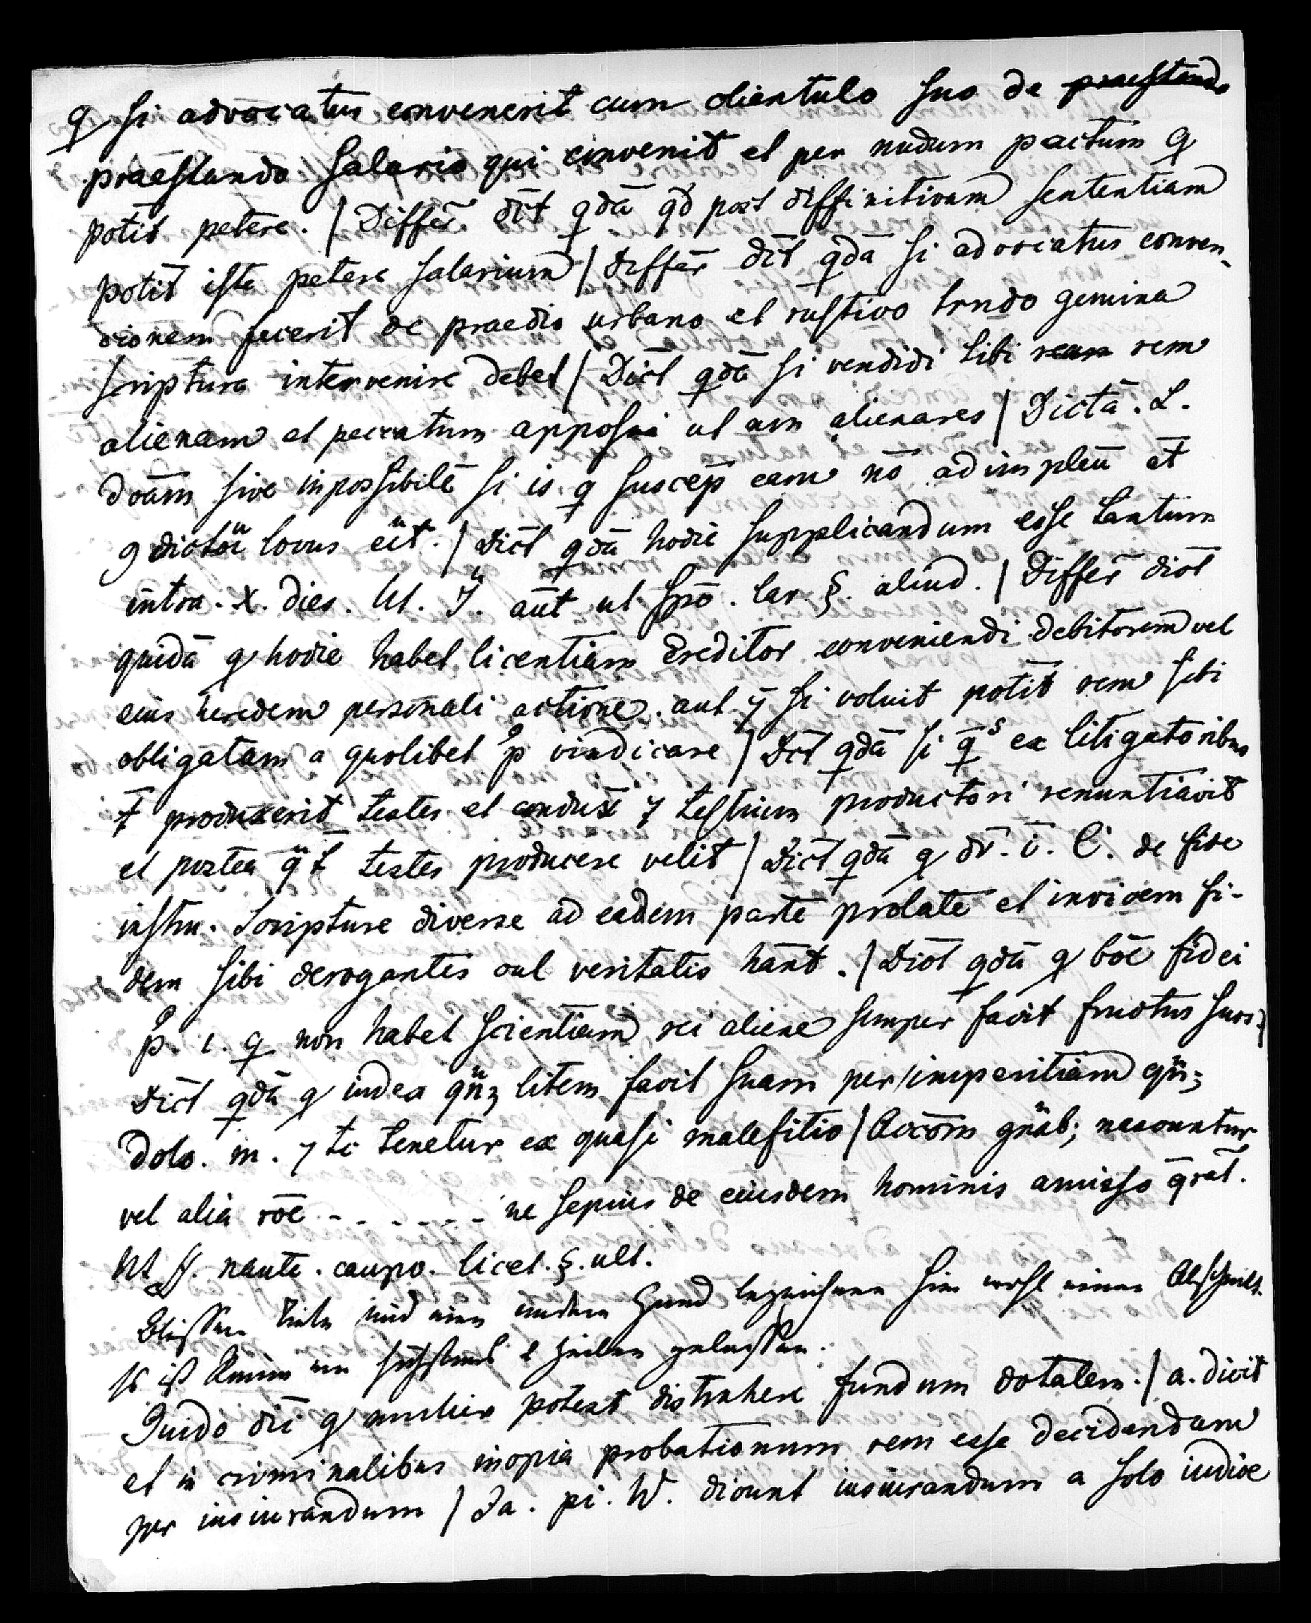 q si advocatus convenerit cum clientulo suo de praestando
praestando salario qui convenit et per nudum pactum q
potit petere. | Differ. dīt qdā qd post diffinitivam sententiam
potit iste petere salarium | differ dīt qdā si advocatus conven-
cionem fecerit de praedio urbano et rustico trndo gemina
scriptura intervenire debet | Dict qdā si vendidi tibi rem
alienam et peccatum apposui ut am alienares | Dictā. L.
doam sive inpossibile si is q suscep eam nō adimpleu et
9dictōi locus eit. | Dict qdā hodie supplicandum esse tantum
intra. x. dies. Ut. J. aut ut spō. lar. §. aliud. | Differ dict
quidā q hodie habet licentiam creditor conveniendi debitorem vel
eius heredem personali actione. aut 7 si voluit potit rem sibi
obligatam a quolibet p vindicare | Dct qdā si qs ex litigatoribus
t produxerit testes et 7 testium productori renuntiavit
et postea testes producere velit | Dict qdā q dr. i. C. de fide
instru. Scripture diverse ad eadem parte prolate et invicem fi-
dem sibi derogantes oul veritatis hant. | Dict qdā q boe fidei
p. i. q non habet scientiam rei aliene semper facit fructus suos |
Dict qdā q iudex qn; litem facit suam per imperitiam qn;
dolo. m. 7 tc tenetur ex quasi malefitio | Accōm gnab; nascuntur
vel alia roe - - - - - - ne sepius de eiusdem hominis amisso qrat.
Ut ff. naute. caupo. licet. §. ult.
Blassere Tinte und eine andere Hand bezeichnen hier wohl einen Abschnitt.
Es ist Raum von Zeilen gelassen.
Guido dic q mulier potest distrahere fundum dotalem. | a. dicit
et in criminalibus inopia probationum rem esse decidendam
per iusiurandum | Ja. pi. W. dicunt iusiurandum a solo iudice